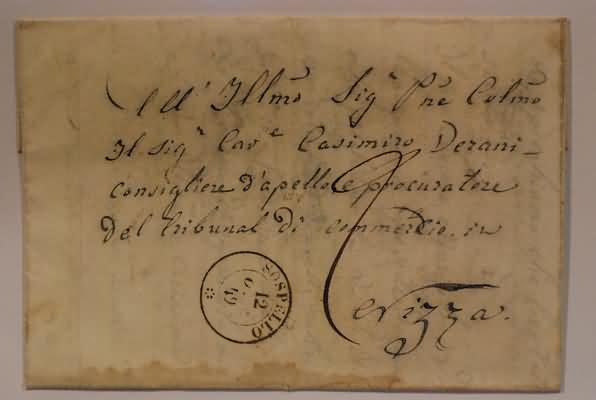 All' Illmo Sigr Pne Colmo
Il sigr Cave Casimiro Derani-
consigliere d'apello e procuratore
del tribunal di commercio. in
Nizza.
SOSPELLO
12